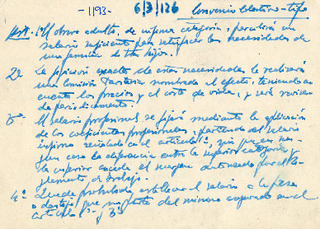 -1193- 6/3/136 Convenio Colectivo-tipo
Art. 1º El obrero adulto, de ínfima categoría, percibirá un
salario suficiente para satisfacer las necesidades de
una familia de dos hijos.
2º La fijación exacta de estas necesidades la realizará
una Comisión Paritaria nombrada al efecto, teniendo en
cuenta los precios y el costo de vida, y será revisada
periódicamente.
3º El salario profesional se fijará mediante la aplicación
de los coeficientes profesionales, partiendo del salario
ínfimo señalado en el artículo 1º, sin que en nin-
gún caso la diferencia entre la superior categoría y
la inferior exceda el margen autorizado por el Re-
glamento de trabajo.
4º Queda prohibido establecer el salario a la pieza
o destajo que no parta del mínimo expresado en el
artículo 1º y 3º